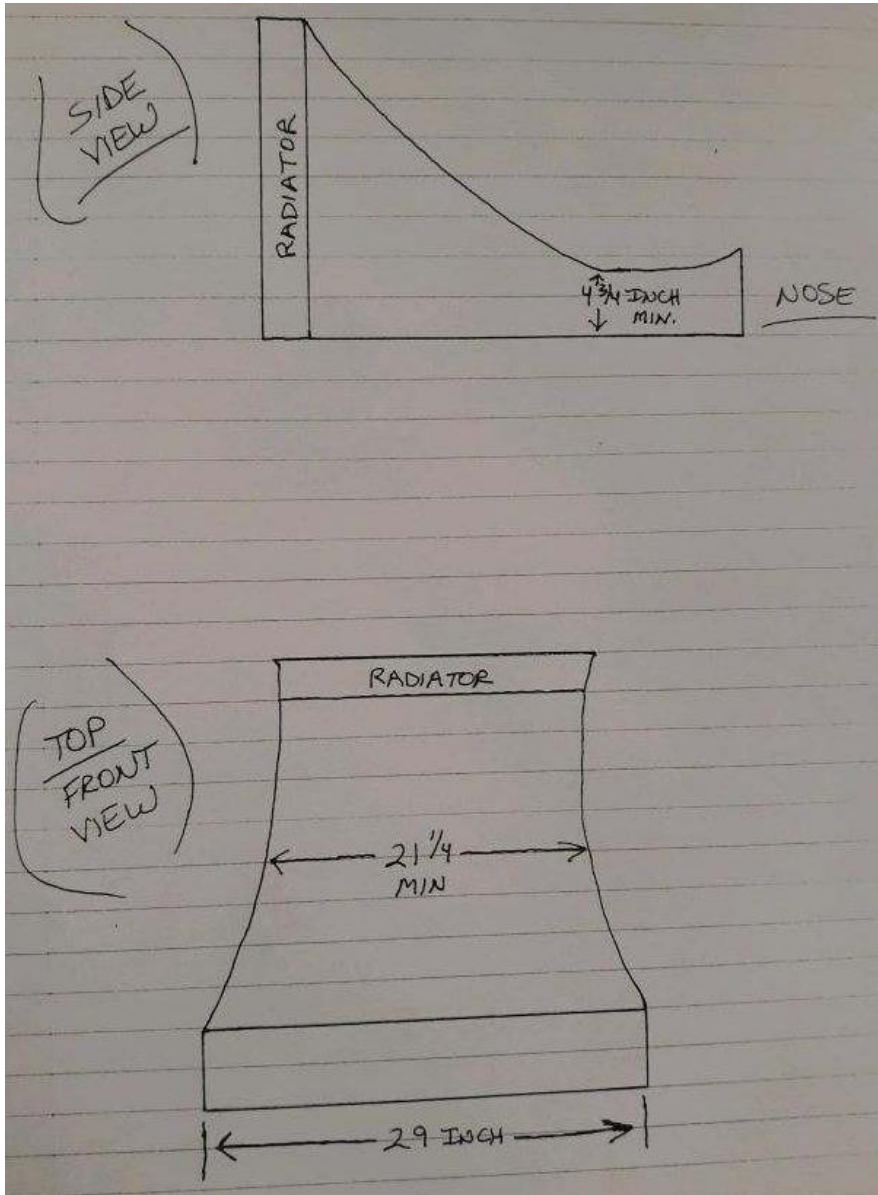 SIDE
VIEW
RADIATOR
4 3/4 INCH
MIN.
NOSE
TOP
FRONT
VIEW
RADIATOR
21 1/4
MIN
29 INCH